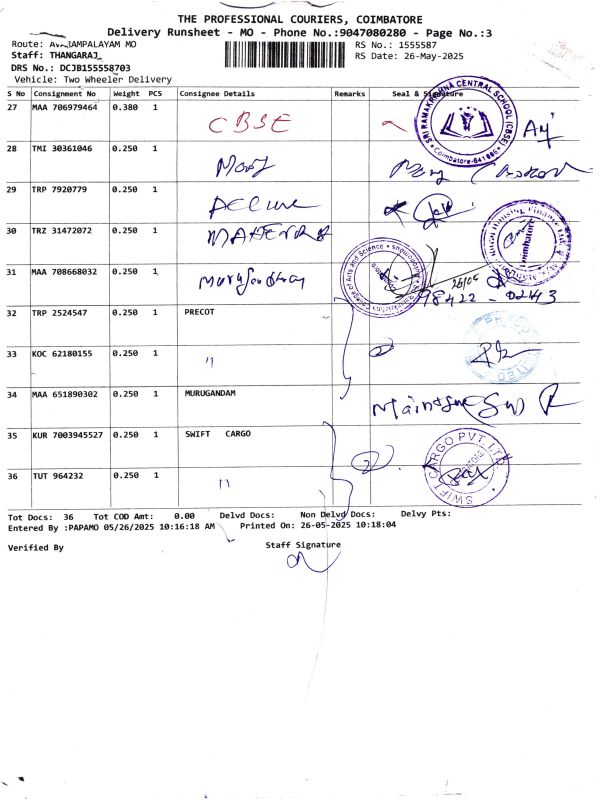 THE PROFESSIONAL COURIERS, COIMBATORE
Delivery Runsheet - MO - Phone No.:9047080280 - Page No.:3
Route: AVARAMPALAYAM MO
RS No.: 1555587
Staff: THANGARAJ
RS Date: 26-May-2025
DRS No.: DCJB155558703
Vehicle: Two Wheeler Delivery
S No Consignment No Weight PCS Consignee Details Remarks Seal & Signature
27 MAA 706979464 0.380 1 CBSE
SRI RAMAKRISHNA CENTRAL SCHOOL (CBSE)
Coimbatore-641006
28 TMI 30361046 0.250 1
29 TRP 7920779 0.250 1
30 TRZ 31472072 0.250 1
31 MAA 708668032 0.250 1
College of Arts and Science
26/05
98422 - 02143
32 TRP 2524547 0.250 1 PRECOT
33 KOC 62180155 0.250 1 "
34 MAA 651890302 0.250 1 MURUGANDAM
35 KUR 7003945527 0.250 1 SWIFT CARGO
SWIFT CARGO PVT. LTD
36 TUT 964232 0.250 1 "
Tot Docs: 36 Tot COD Amt: 0.00 Delvd Docs: Non Delvd Docs: Delvy Pts:
Entered By :PAPAMO 05/26/2025 10:16:18 AM Printed On: 26-05-2025 10:18:04
Verified By
Staff Signature